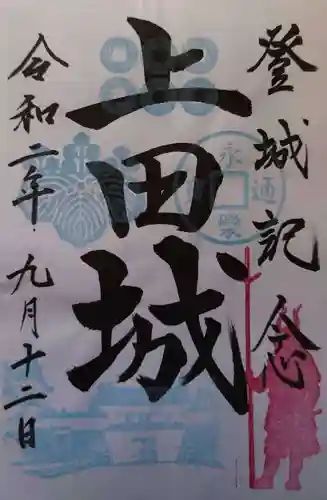 登城記念
上田城
令和二年九月十二日
永楽通